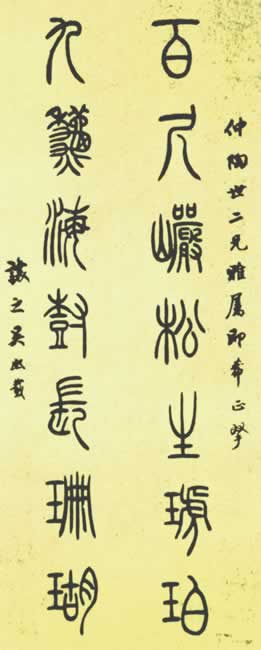 仲陶世二兄雅屬即希正
百尺巖松生琥珀
九龝海樹長珊瑚
讓之吳熙載